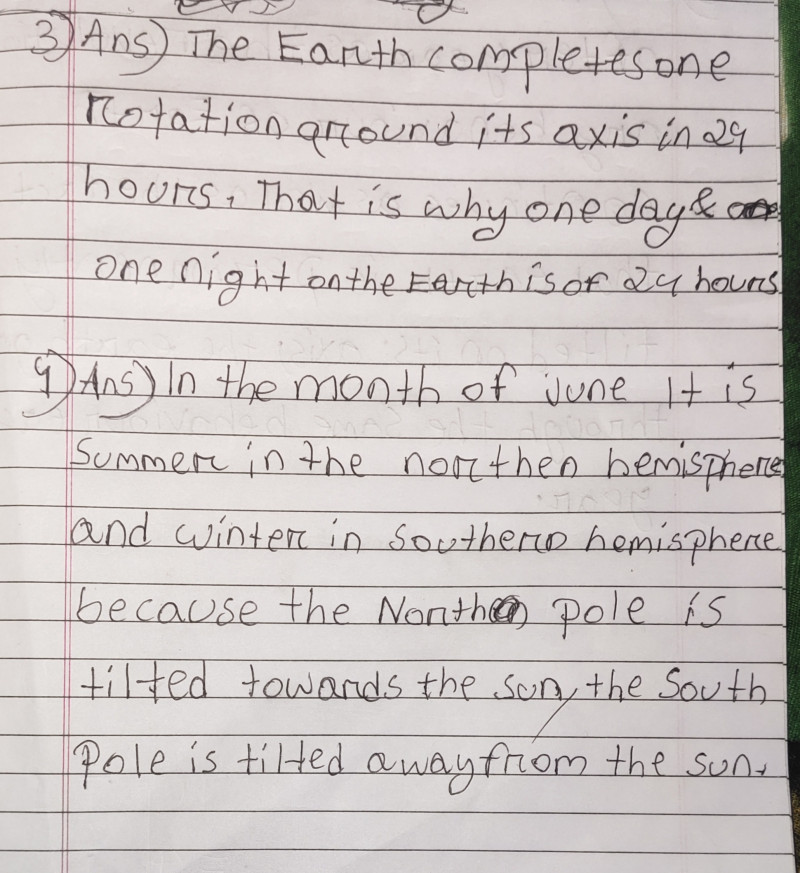 3) Ans) The Earth completes one
rotation around its axis in 24
hours. That is why one day &
one night on the Earth is of 24 hours
4) Ans) In the month of june It is
Summer in the northen hemisphere
and winter in Southern hemisphere
because the North pole is
tilted towards the sun, the South
Pole is tilted away from the sun.